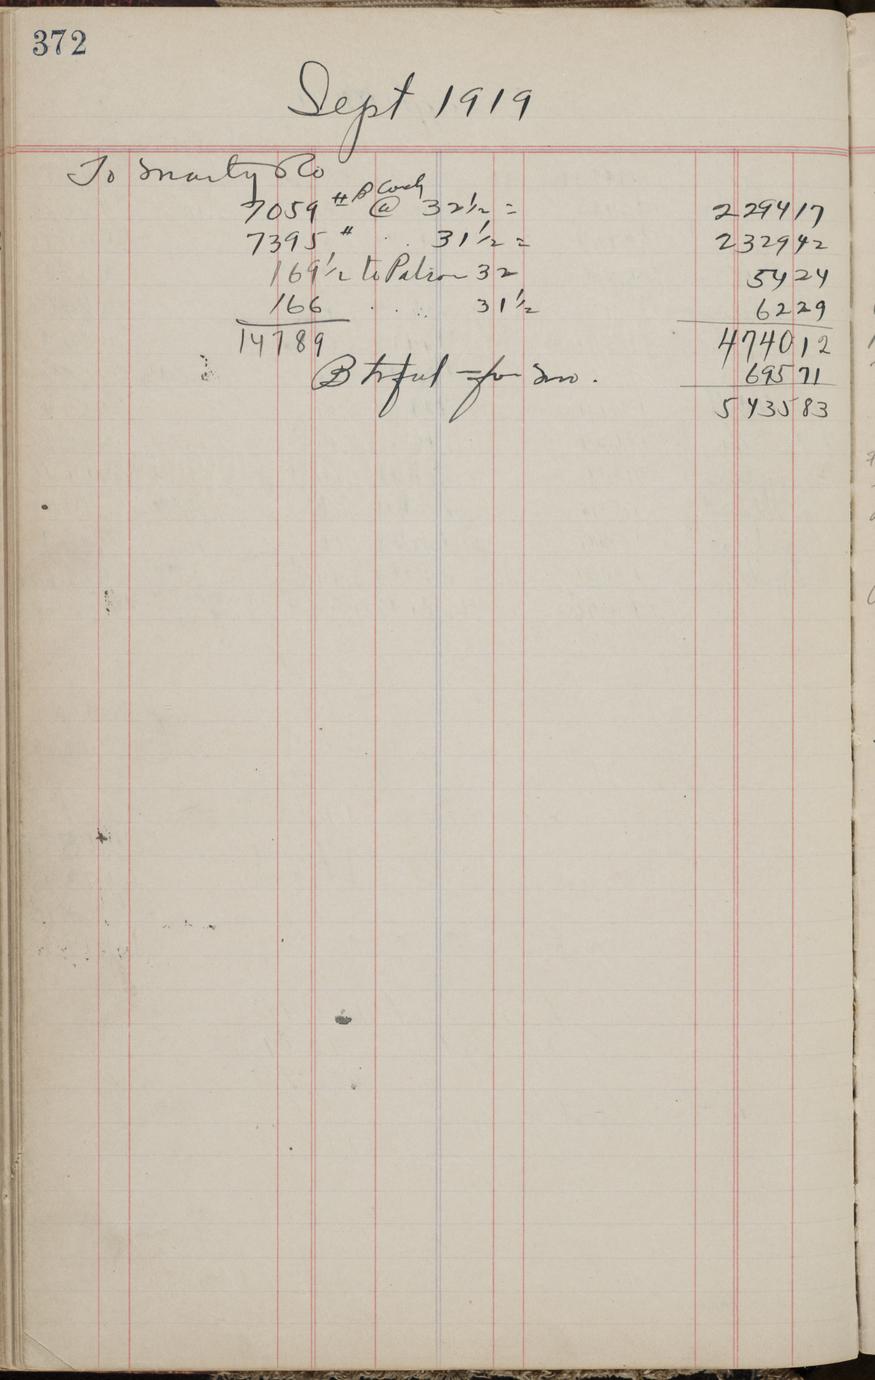 372
Sept 1919
To Marty Co
7059 # B @ 32½ = 2294 17
7395 # 31½ = 2329 42
169½ to Patron 32 54 24
166 . . . 31½ 62 29
14789 4740 12
B for mo. 695 71
5435 83